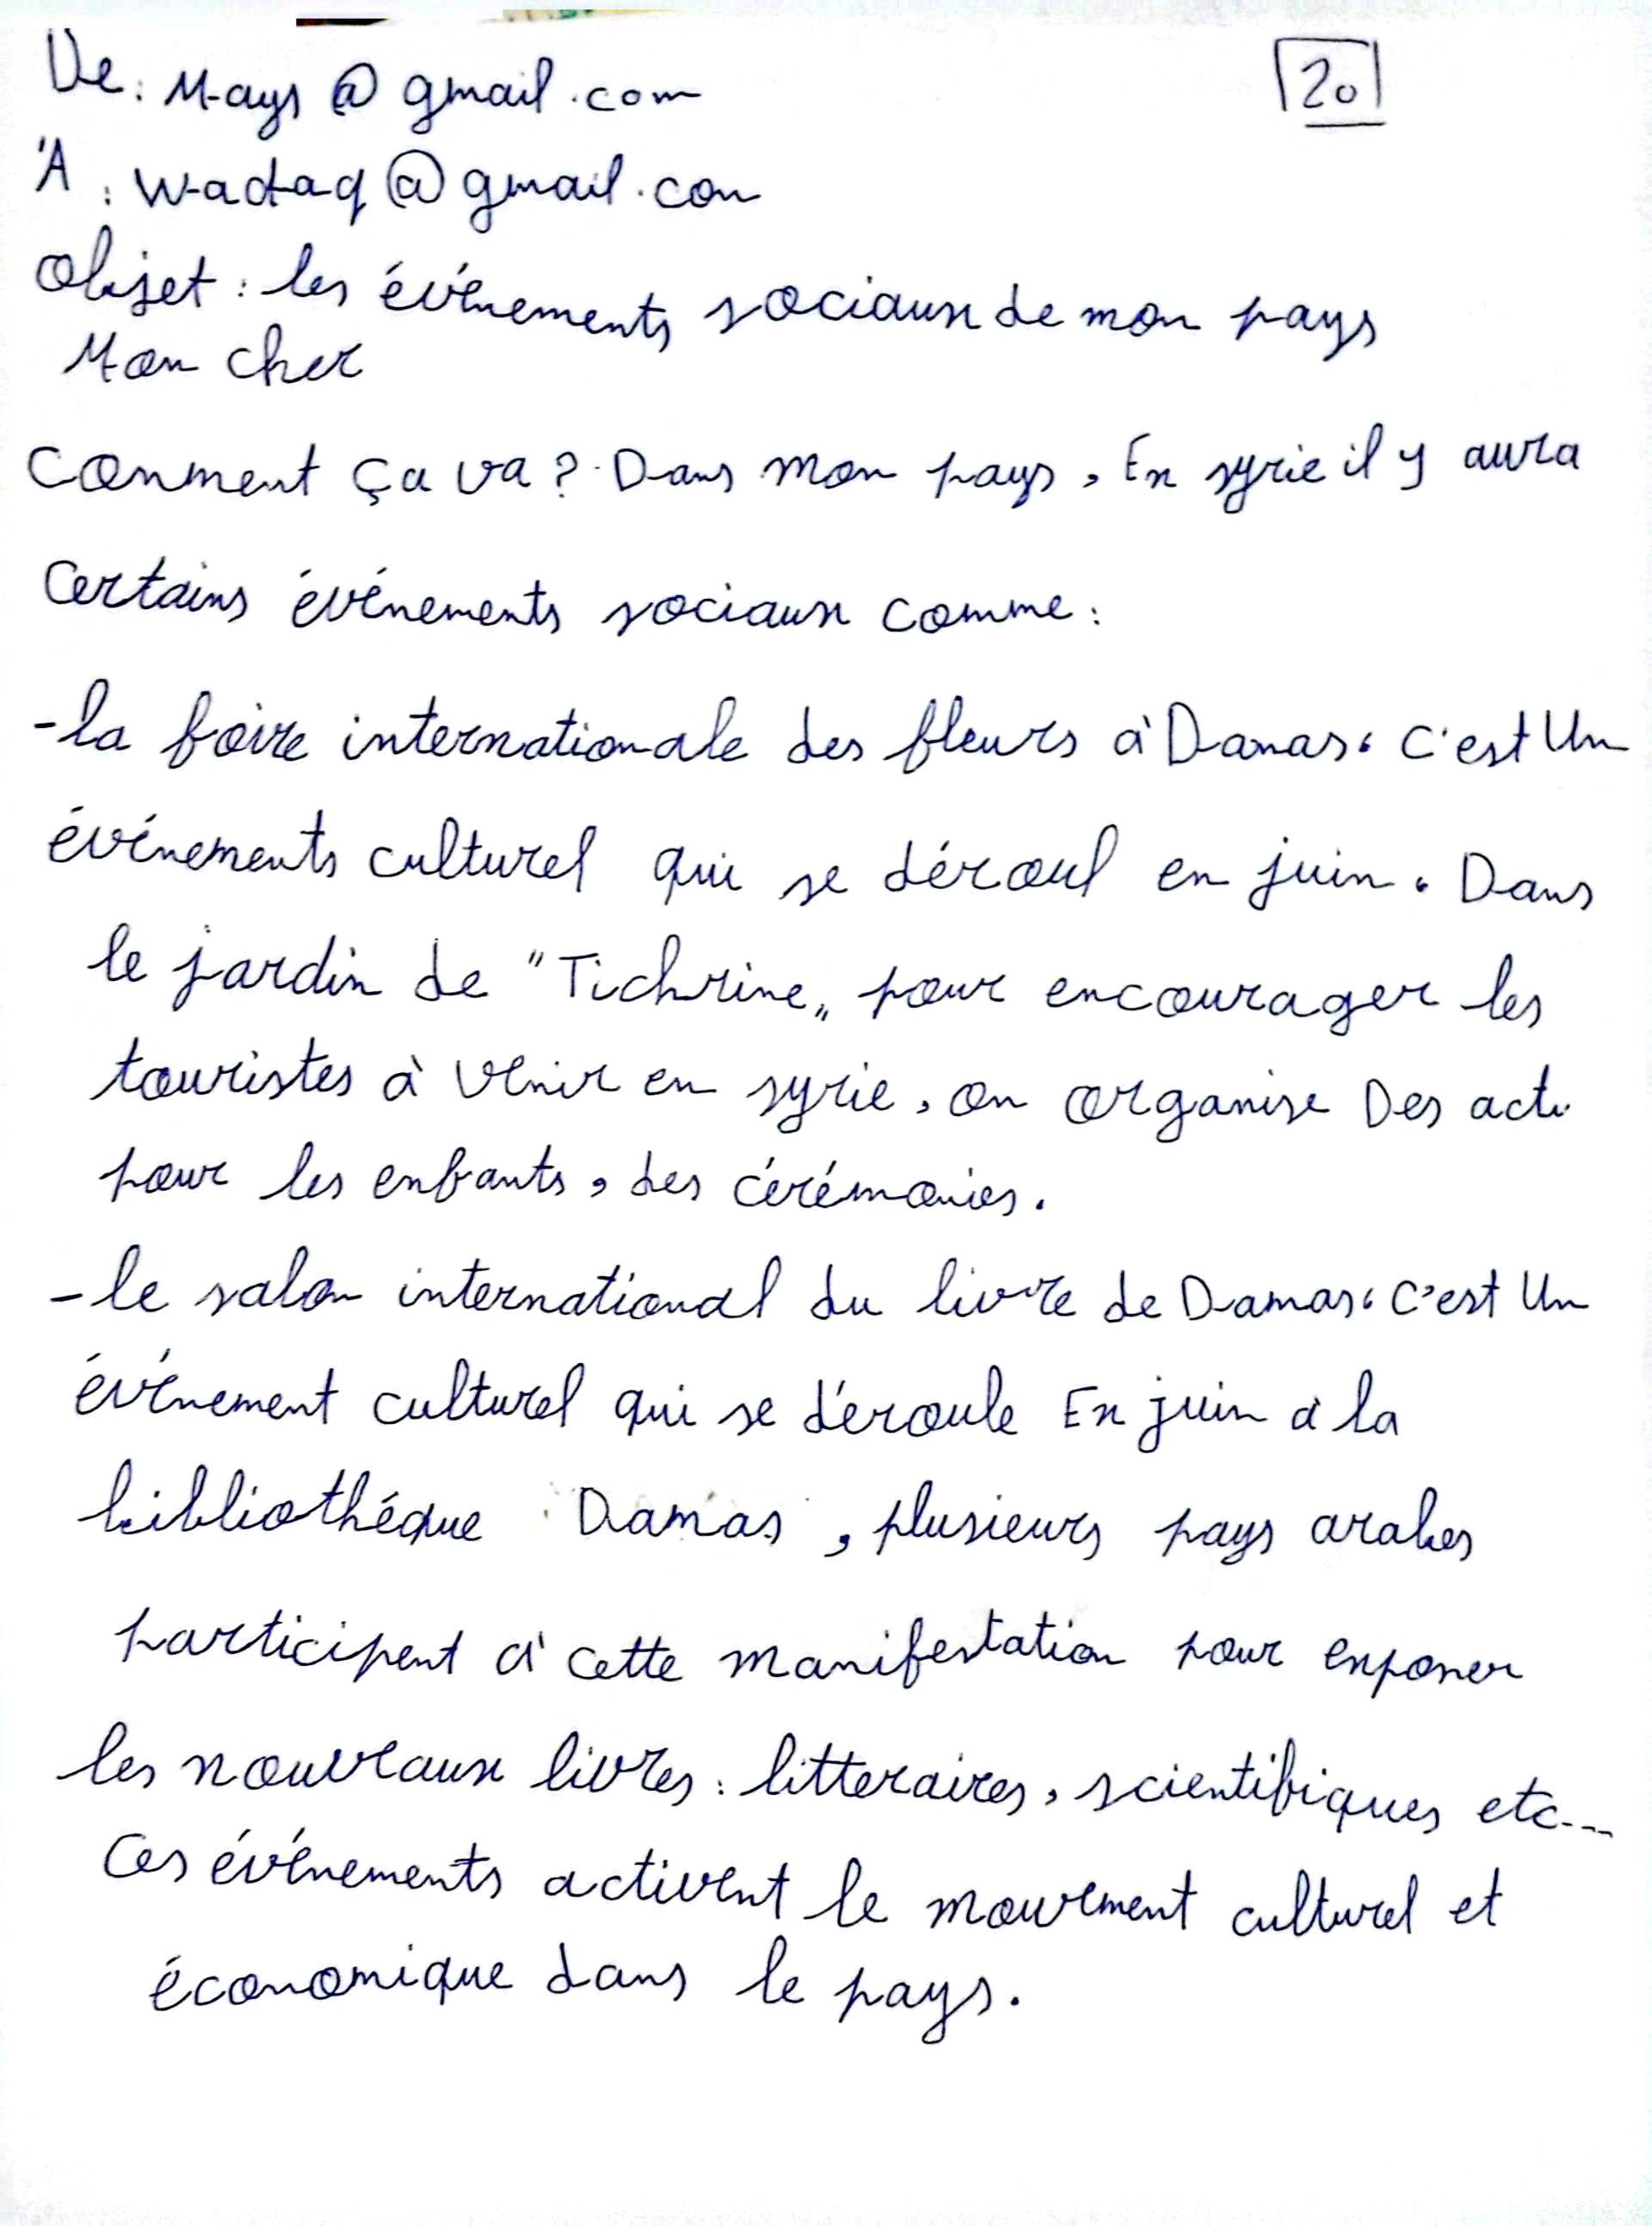 De : Mays @ gmail.com
20
À : wadaq@gmail.com
Objet : les événements sociaux de mon pays
Mon cher
Comment ça va ? Dans mon pays, En syrie il y aura
Certains événements sociaux comme :
-la foire internationale des fleurs à Damas. C'est Un
événements culturel qui se déroul en juin. Dans
le jardin de "Tichrine" pour encourager les
touristes à venir en syrie, on organise Des acti
pour les enfants, des cérémonies.
-le salon international du livre de Damas. C'est Un
événement culturel qui se déroule En juin à la
bibliothéque Damas, plusieurs pays arabes
participent à cette manifestation pour exposer
les nouveaux livres : litteraires, scientifiques etc...
Ces événements activent le mouvement culturel et
économique dans le pays.